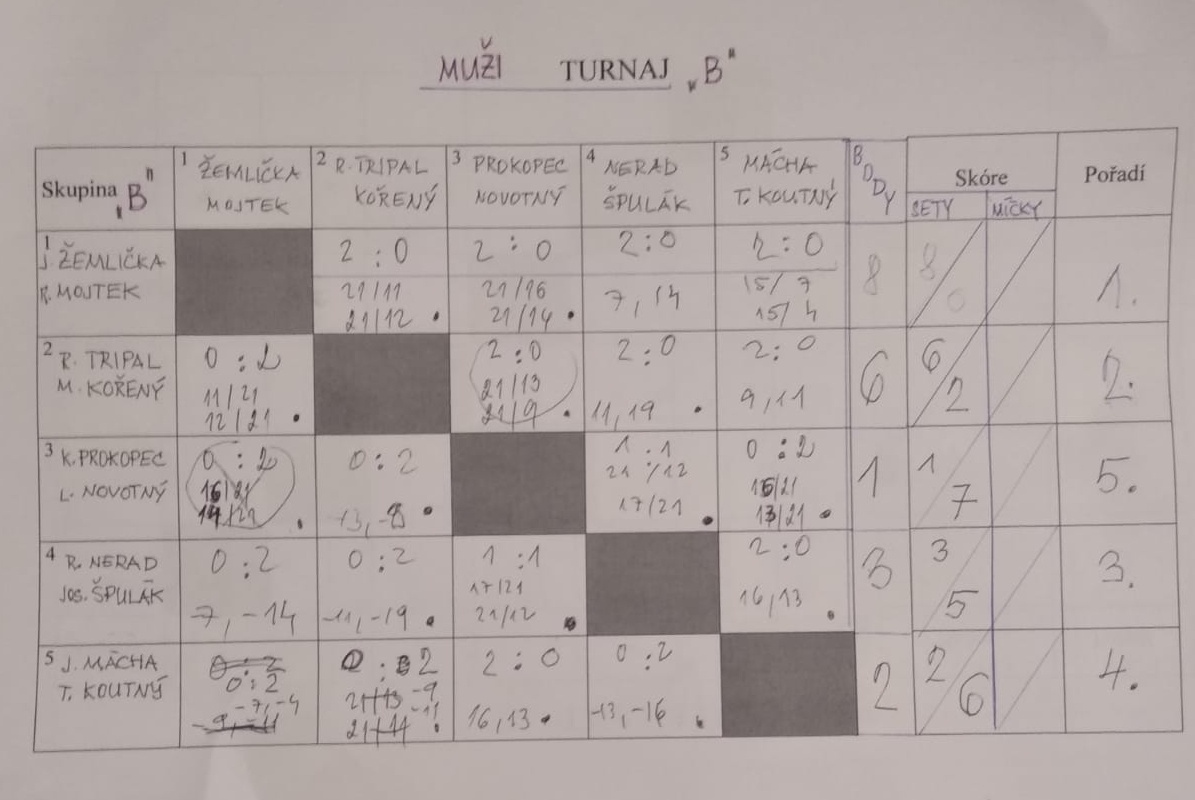 MUŽI TURNAJ „B"
Skupina „B"
1 ŽEMLIČKA MOJTEK
2 R. TRIPAL KOŘENÝ
3 PROKOPEC NOVOTNÝ
4 NERAD ŠPULÁK
5 MÁCHA T. KOUTNÝ
BODY
Skóre
SETY MÍČKY
Pořadí
1 J. ŽEMLIČKA
R. MOJTEK
2 : 0
21/11
21/12
2 : 0
21/16
21/14
2 : 0
7, 14
2 : 0
15/7
15/4
8
8/0
1.
2 R. TRIPAL
M. KOŘENÝ
0 : 2
11/21
12/21
2 : 0
21/13
21/9
2 : 0
11, 19
2 : 0
9, 11
6
6/2
2.
3 K. PROKOPEC
L. NOVOTNÝ
0 : 2
16/21
14/21
0 : 2
-13, -8
1 : 1
21/12
17/21
0 : 2
16/21
13/21
1
1/7
5.
4 R. NERAD
JOS. ŠPULÁK
0 : 2
-7, -14
0 : 2
-11, -19
1 : 1
17/21
21/12
2 : 0
16, 13
3
3/5
3.
5 J. MÁCHA
T. KOUTNÝ
0 : 2
0 : 2
-7, -4
-9, -11
0 : 2
21/13 -9
21/11 -11
2 : 0
16, 13
0 : 2
-13, -16
2
2/6
4.